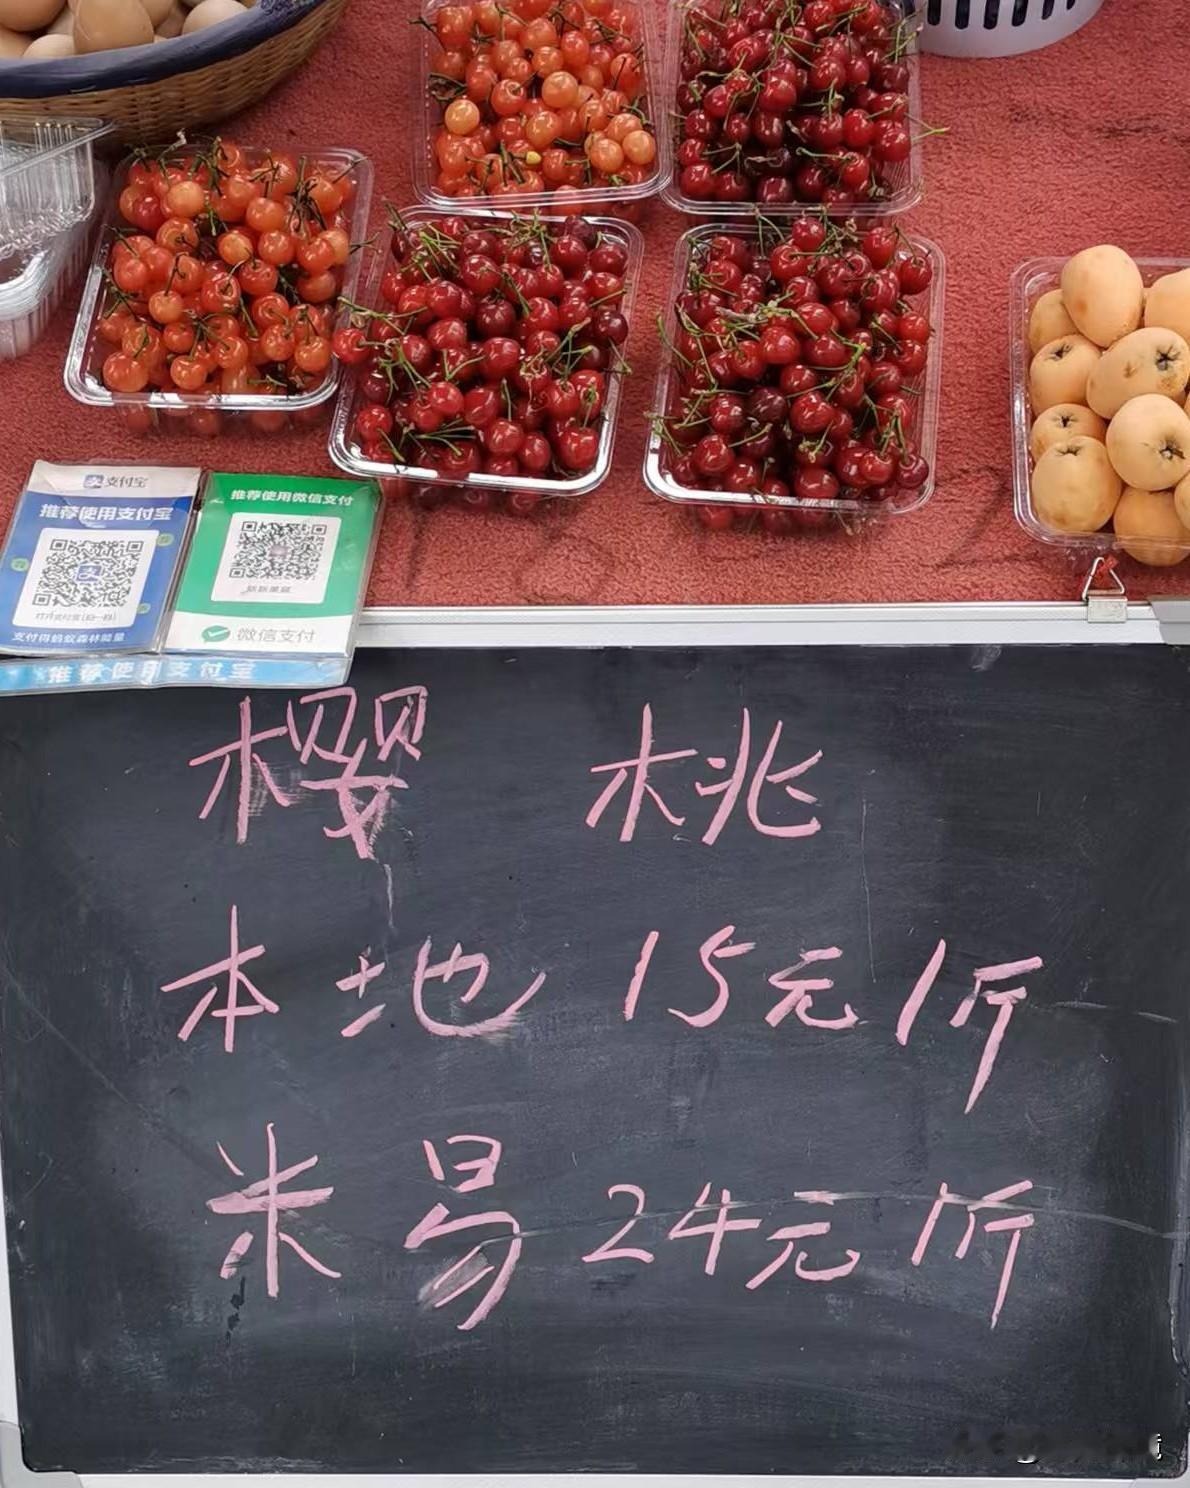 支付宝
推荐使用支付宝
支付得蚂蚁森林能量
推荐使用微信支付
微信支付
推荐使用支付宝
樱 桃
本地 15元1斤
米易 24元1斤